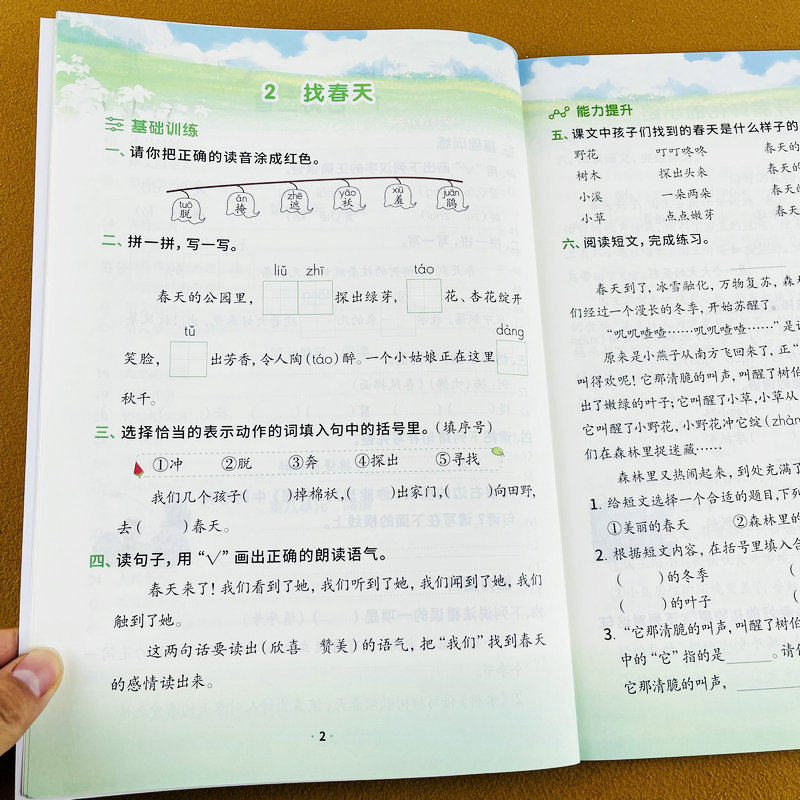 2 找春天
基础训练
一、请你把正确的读音涂成红色。
tuō ǎn zhē yāo xiū juān
脱 掩 遮 袄 羞 鹃
二、拼一拼，写一写。
liǔ zhī táo
春天的公园里， 探出绿芽， 花、杏花绽开
tǔ dàng
笑脸， 出芳香，令人陶(táo)醉。一个小姑娘正在这里
秋千。
三、选择恰当的表示动作的词填入句中的括号里。(填序号)
①冲 ②脱 ③奔 ④探出 ⑤寻找
我们几个孩子( )掉棉袄，( )出家门，( )向田野，
去( )春天。
四、读句子，用“√”画出正确的朗读语气。
春天来了！我们看到了她，我们听到了她，我们闻到了她，我们
触到了她。
这两句话要读出(欣喜 赞美)的语气，把“我们”找到春天
的感情读出来。
· 2 ·
能力提升
五、课文中孩子们找到的春天是什么样子的
野花 叮叮咚咚 春天的
树木 探出头来 春天的
小溪 一朵两朵 春天的
小草 点点嫩芽 春天
六、阅读短文，完成练习。
春天到了，冰雪融化，万物复苏，森
们经过一个漫长的冬季，开始苏醒了。
“叽叽喳喳……叽叽喳喳……”是
原来是小燕子从南方飞回来了，正“
叫得欢呢！它那清脆的叫声，叫醒了树伯
出了嫩绿的叶子；它叫醒了小草，小草从
它叫醒了小野花，小野花冲它绽(zhàn
们在森林里捉迷藏……
森林里又热闹起来，到处充满了
1. 给短文选择一个合适的题目，下列
①美丽的春天 ②森林里的
2. 根据短文内容，在括号里填入合
( )的冬季 (
( )的叶子 (
3. “它那清脆的叫声，叫醒了树伯
中的“它”指的是 。请你
它那清脆的叫声，